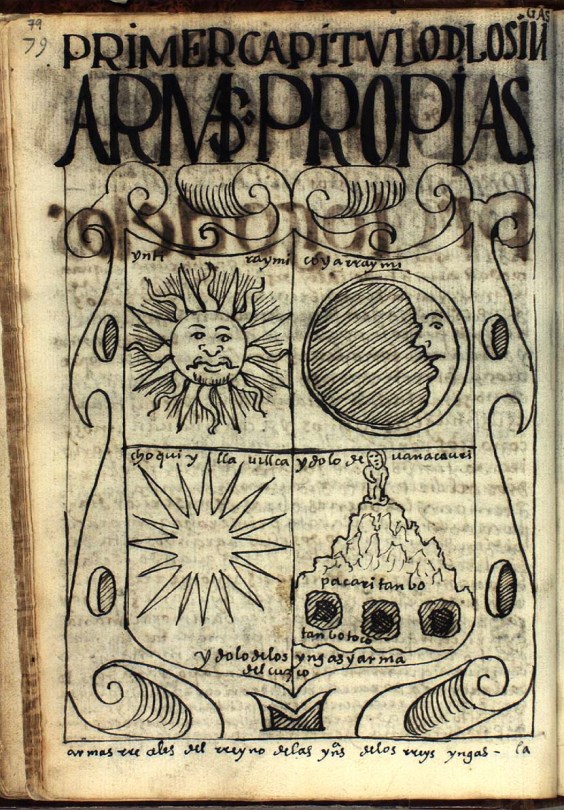 79
79
GAS
PRIMER CAPITVLO D LOS IN
ARMAS: PROPIAS
ynti raymi
coyarraymi
choqui ylla uillca
ydolo de uanacauri
pacaritanbo
tanbotoco
ydolo de los yngas y arma
del cuzco
armas rreales del rreyno de las yn̄s de los rreys yngas - la